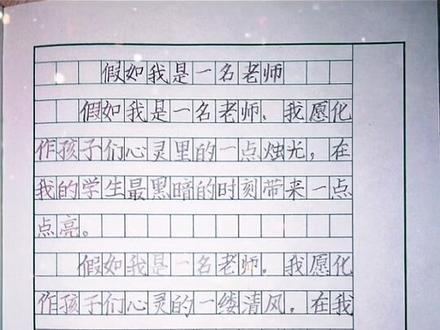 假如我是一名老师
假如我是一名老师、我愿化
作孩子们心灵里的一点烛光，在
我的学生最黑暗的时刻带来一点
点亮。
假如我是一名老师．我愿化
作孩子们心灵的一缕清风，在我